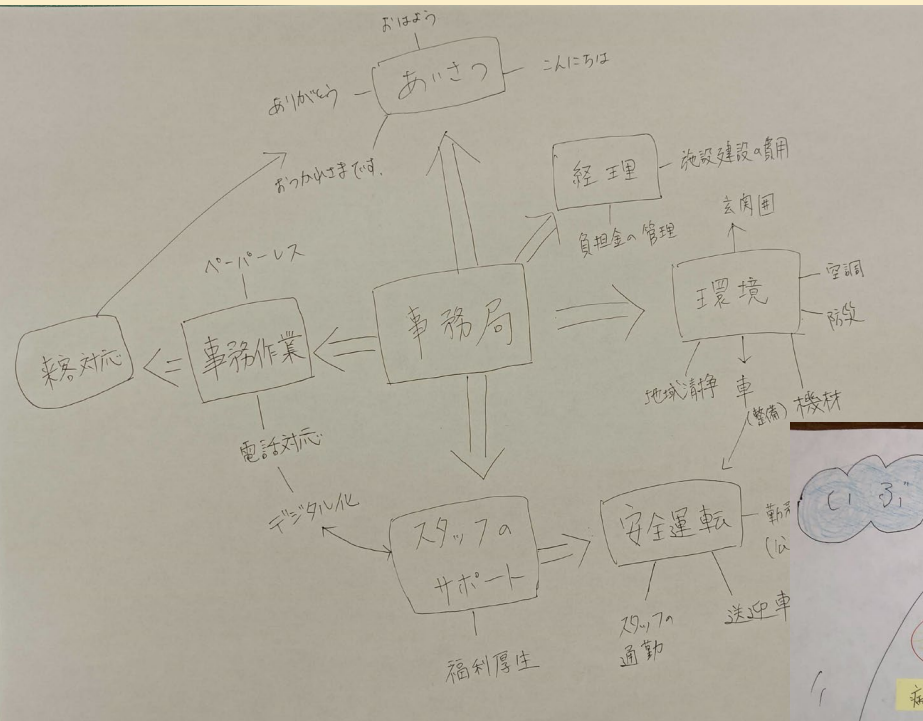 おはよう
あいさつ
こんにちは
ありがとう
おつかれさまです.
経理
施設建設の費用
負担金の管理
玄関囲
環境
空調
防災
地域清掃
車
(整備)
機材
ペーパーレス
事務局
事務作業
来客対応
電話対応
デジタル化
スタッフの
サポート
福利厚生
安全運転
スタッフの
通勤
送迎車